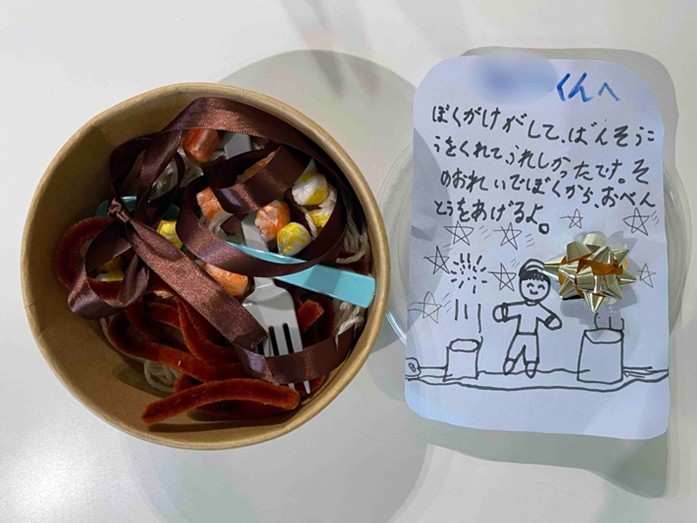 くんへ
ぼくがけがして、ばんそうこ
うをくれてうれしかったです。そ
のおれいでぼくから、おべん
とうをあげるよ。